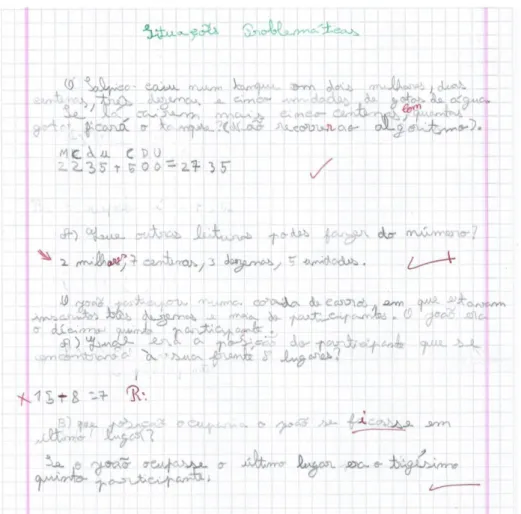 Situações Problemáticas
O Salpico caiu num tanque com dois milhares, duas
centenas, três dezenas e cinco unidades de gotas de água.
Se lá caírem mais cinco centenas, com quantas
gotas ficará o tanque? (Não recorrer ao algoritmo).
M C d u C D U
2 2 3 5 + 5 0 0 = 27 3 5
A) Que outras leituras podes fazer do número?
2 milhares, 7 centenas, 3 dezenas, 5 unidades.
O João participou numa corrida de carros, em que estavam
inscritos três dezenas e meia de participantes. O João era
o décimo quinto participante.
A) Qual era a posição do participante que se
encontrava à sua frente 8 lugares?
15 + 8 = 7 R:
B) que posição ocuparia o João se ficasse em
último lugar?
Se o João ocupasse o último lugar era o trigésimo
quinto participante.